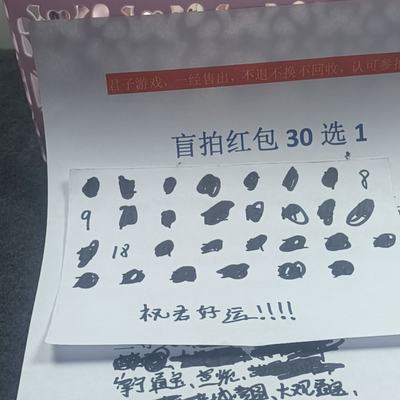 君子游戏，一经售出，不退不换不回收，认可参拍
盲拍红包 30 选 1
8
9
18
祝君好运!!!!
大观通宝、